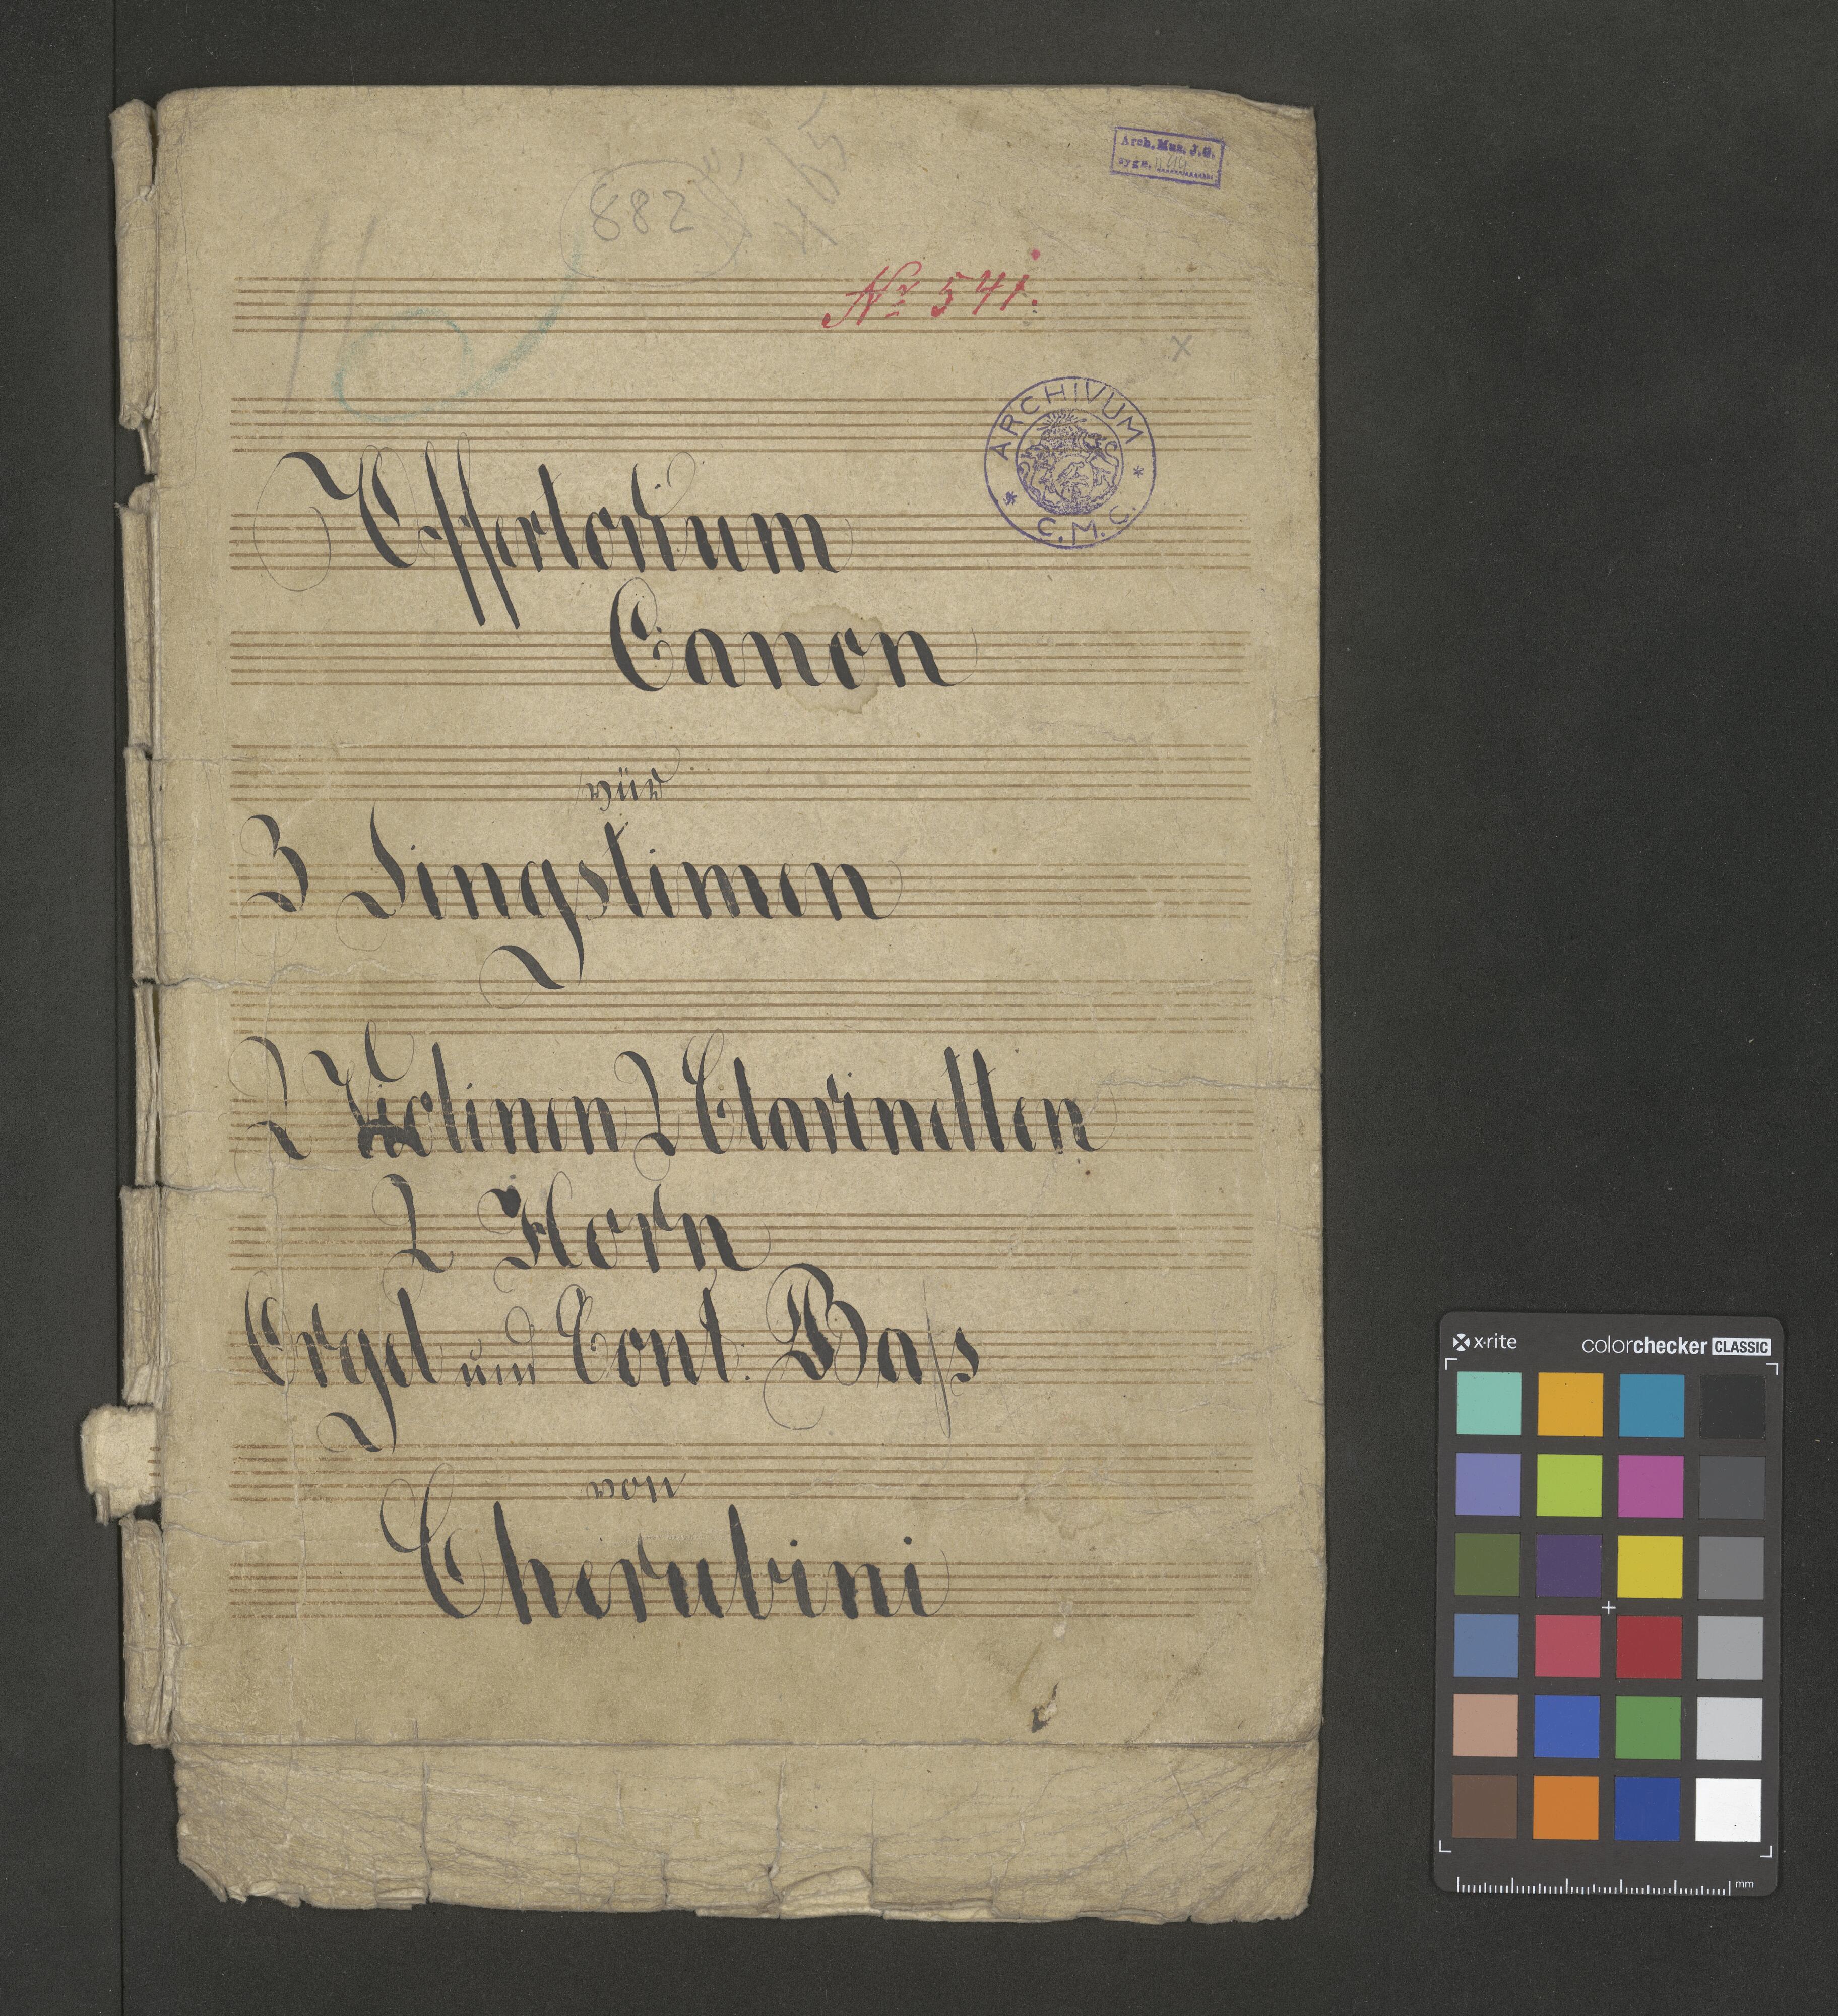 Arch. Muz. J. G.
sygn.
882
Nr 541.
ARCHIVUM
* C. M. C. *
Offertorium
Canon
vür
3 Singstimen
2 Violinen 2 Clarinetten
2 Horn
Orgel und Cont. Baſs
von
Cherubini
x·rite
colorchecker CLASSIC
mm